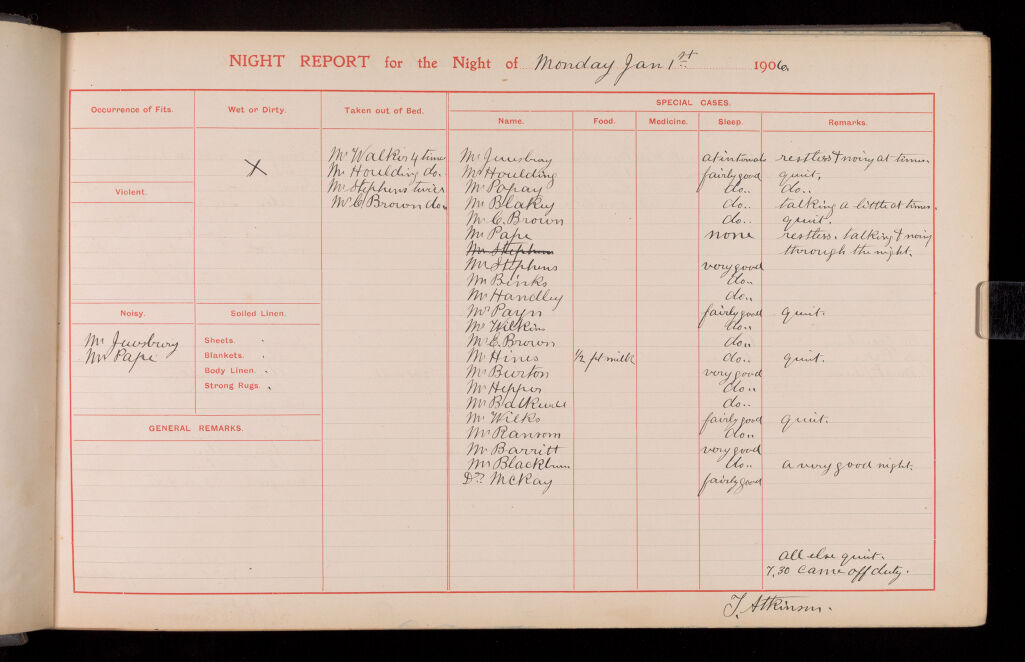 NIGHT REPORT for the Night of Monday Jan 1st 1906.
Occurrence of Fits.
Wet or Dirty.
Taken out of Bed.
SPECIAL CASES.
Name. Food. Medicine. Sleep. Remarks.
X
Mr Walker 4 times
Mr Houlding do.
Mr Stephens twice
Mr C Brown do..
Violent.
Noisy.
Mr Jewsbury
Mr Pape
Soiled Linen.
Sheets.
Blankets.
Body Linen.
Strong Rugs.
GENERAL REMARKS.
Mr Jewsbury at intervals restless & noisy at times.
Mr Houlding fairly good quiet.
Mr Papay do.. do..
Mr Blakey do.. talking a little at times.
Mr C. Brown do.. quiet.
Mr Pape none restless. talking & noisy
Mr Stephens through the night.
Mr Stephens very good
Mr Binks do..
Mr Handley do..
Mr Payn fairly good quiet.
Mr Wilkins do..
Mr E. Brown do..
Mr Hines 1/2 pt milk do.. quiet.
Mr Burton very good
Mr Heppor do..
Mr do..
Mr Wilks fairly good quiet.
Mr Ransom do..
Mr Barritt very good
Mr Blackburn do.. a very good night.
Dr McKay fairly good
all else quiet.
7.30 came off duty.
T. Atkinson.